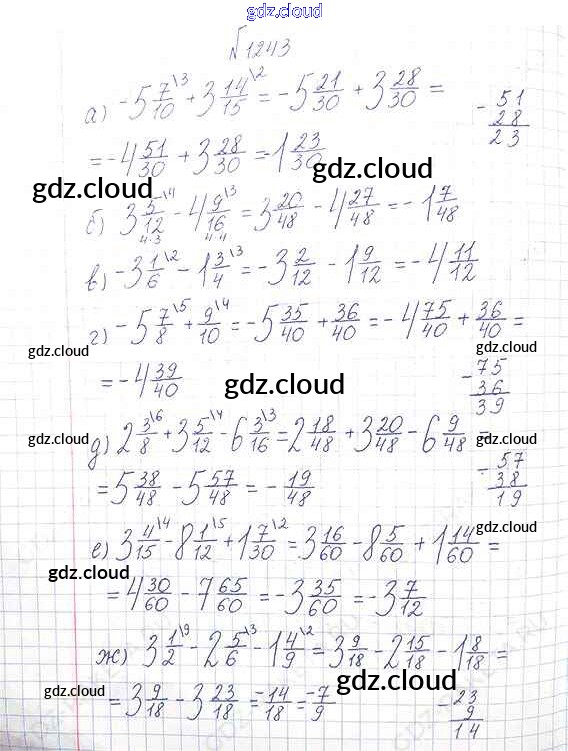 gdz.cloud
№1243
а) -5 7/10\3 + 3 14/15\2 = -5 21/30 + 3 28/30 =
= -4 51/30 + 3 28/30 = 1 23/30
- 51
28
23
gdz.cloud gdz.cloud
б) 3 5/12\4 - 4 9/16\3 = 3 20/48 - 4 27/48 = -1 7/48
4·3 4·4
в) -3 1/6\2 - 1 3/4\3 = -3 2/12 - 1 9/12 = -4 11/12
г) -5 7/8\5 + 9/10\4 = -5 35/40 + 36/40 = -4 75/40 + 36/40 =
gdz.cloud gdz.cloud
= -4 39/40
gdz.cloud
- 75
36
39
д) 2 3/8\6 + 3 5/12\4 - 6 3/16\3 = 2 18/48 + 3 20/48 - 6 9/48 =
gdz.cloud gdz.cloud
= 5 38/48 - 5 57/48 = - 19/48
- 57
38
19
е) 3 4/15\4 - 8 1/12\5 + 1 7/30\2 = 3 16/60 - 8 5/60 + 1 14/60 =
gdz.cloud gdz.cloud
= 4 30/60 - 7 65/60 = -3 35/60 = -3 7/12
ж) 3 1/2\9 - 2 5/6\3 - 1 4/9\2 = 3 9/18 - 2 15/18 - 1 8/18 =
gdz.cloud gdz.cloud
= 3 9/18 - 3 23/18 = -14/18 = -7/9
- 23
9
14